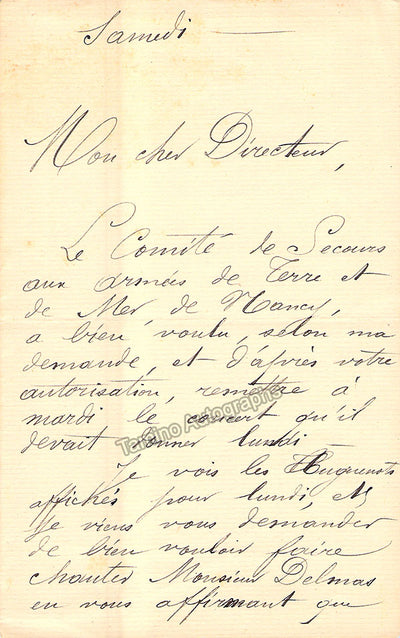 Samedi
Mon cher Directeur,
Le Comité de Secours
aux armées de Terre et
de Mer, de Nancy,
a bien voulu, selon ma
demande, et d'après votre
autorisation, remettre à
mardi le concert qu'il
devait donner lundi —
Tamino Autographs
Je vois les Huguenots
affichés pour lundi, et
je viens vous demander
de bien vouloir faire
chanter Monsieur Delmas
en vous affirmant que